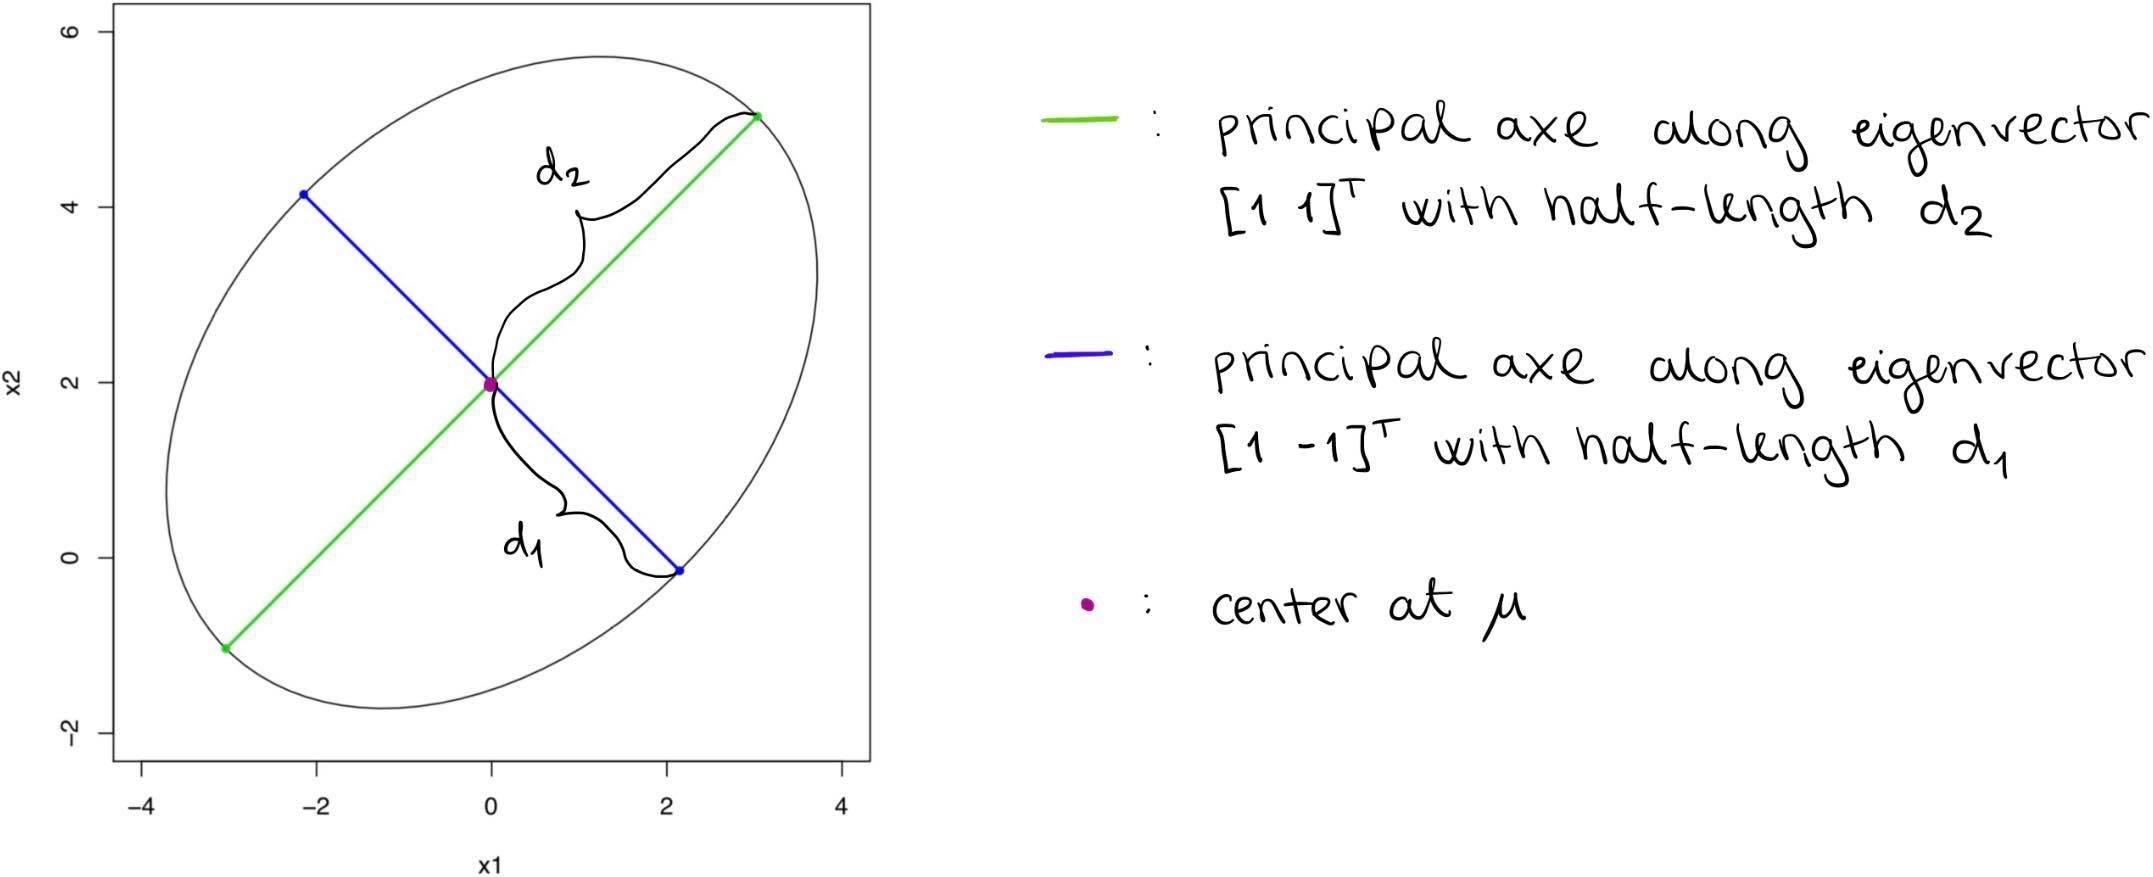 6
4
2
0
-2
x2
-4 -2 0 2 4
x1
d2
d1
: principal axe along eigenvector
[1 1]ᵀ with half-length d2
: principal axe along eigenvector
[1 -1]ᵀ with half-length d1
: center at μ